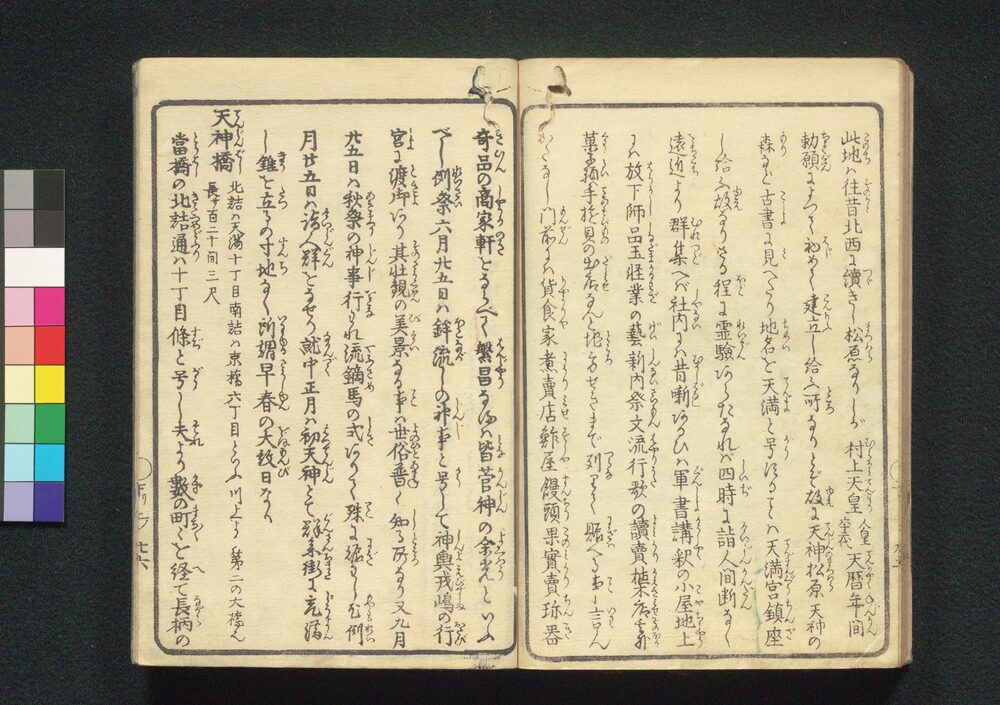 此地ハ往昔北西に續きし松原なりしが村上天皇人皇六十二代天暦年間
勅願によつて初めて建立し給ふ所なりとぞ故に天神松原天神の
森など古書に見へたり地名を天満と号ることハ天満宮鎮座
し給ふ故なりさる程に霊験いちじるしければ四時に詣人間断なく
遠近より群集へバ社内にハ昔噺あるひハ軍書講釈の小屋地上
にハ放下師品玉軽業の藝新内祭文流行歌の讀賣植木店
菓子箱手遊具の出店なんど地せきまで列りて賑へること言ん
かたなし門前にハ貨食家煮賣店鮓屋饅頭果實賣珎器
奇品の商家軒をならべて繁昌なるハ皆菅神の余光といふ
べし例祭六月廿五日ハ鉾流しの神事と号して神輿戎嶋の行
宮に渡御あり其壮観の美景なる事ハ世俗普く知る所なり又九月
廿五日ハ秋祭の神事行はれ流鏑馬の式ありて殊に賑ハし例
月廿五日ハ詣人群をなせり就中正月ハ初天神とて群参街に充満
し錐を立るの寸地なし所謂早春の大紋日なり
天神橋 北詰ハ天満十丁目南詰ハ京橋六丁目といふ川上より第二の大橋也
長サ百二十間三尺
當橋の北詰通ハ十丁目條と号し夫より數の町々を経て長柄の